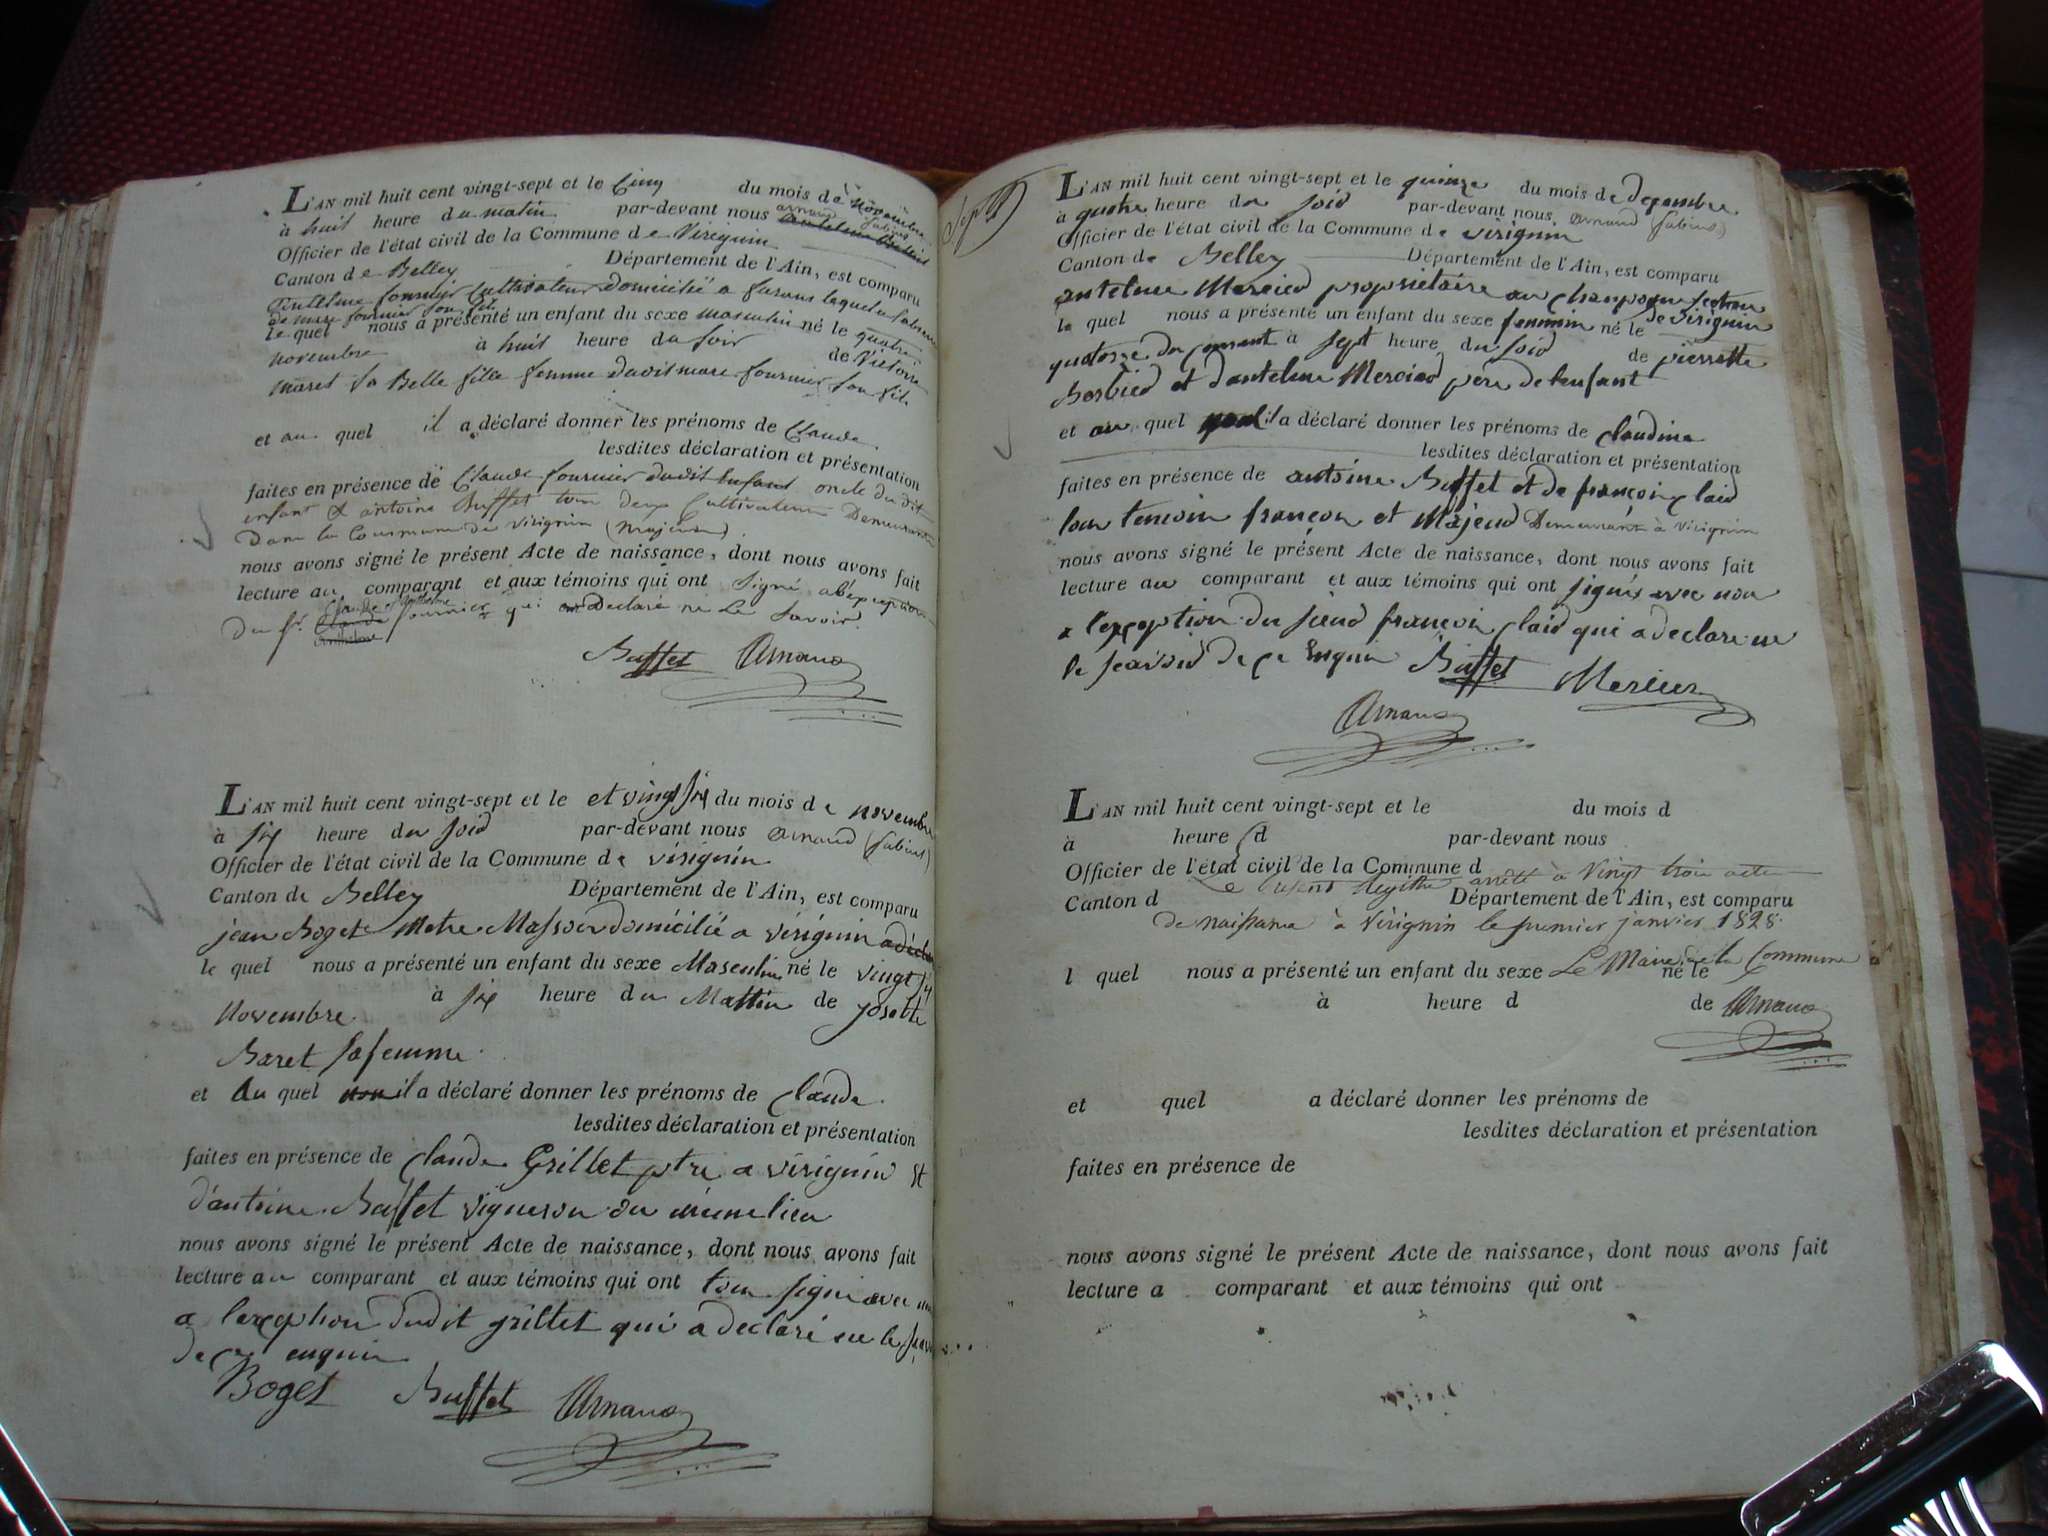 L'AN mil huit cent vingt-sept et le Cinq du mois de novembre
à huit heure du matin par-devant nous arnaud (Sabins)
Officier de l'état civil de la Commune de Vireguin
Canton de Belley Département de l'Ain, est comparu
fournier Cultivateur domicilié a lequel a
de marc fournier son fils
le quel nous a présenté un enfant du sexe masculin né le quatre
novembre à huit heure du soir de Victoire
maret sa Belle fille femme dudit marc fournier son fils
et au quel il a déclaré donner les prénoms de Claude
lesdites déclaration et présentation
faites en présence de Claude fournier dudit enfant oncle du dit
enfant et antoine Buffet tous deux Cultivateurs Demeurants
dans la Commune de Virignin (majeurs)
nous avons signé le présent Acte de naissance, dont nous avons fait
lecture au comparant et aux témoins qui ont signé à l'exception
Claude Anthelme
du sr. Claude fournier qui a Declaré ne Le Savoir
anthelme
Buffet Arnaud
L'AN mil huit cent vingt-sept et le et vingt six du mois de novembre
à six heure du soid par-devant nous arnaud (Sabins)
Officier de l'état civil de la Commune de virignin
Canton de Belley Département de l'Ain, est comparu
jean Boget Metre Masson domicilié a virignin
le quel nous a présenté un enfant du sexe Masculin né le vingt six
Novembre à six heure du Mattin de josette
Baret sa femme
et Au quel il a déclaré donner les prénoms de Claude
lesdites déclaration et présentation
faites en présence de Claude Grillet ptre a virignin et
d'antoine Buffet vigneron du même lieu
nous avons signé le présent Acte de naissance, dont nous avons fait
lecture au comparant et aux témoins qui ont tous signé avec nous
a lexception dudit grillet qui a declaré ne le
de ce enquis
Boget Buffet Arnaud
Sept
L'AN mil huit cent vingt-sept et le quinze du mois de decembre
à quatre heure du soid par-devant nous arnaud (Sabins)
Officier de l'état civil de la Commune de virignin
Canton de Belley Département de l'Ain, est comparu
antelme Mercied propriétaire au section
de virignin
le quel nous a présenté un enfant du sexe feminin né le
quatorze du courant à sept heure du soid de pierrette
Berbied et dantelme Mercied père de lenfant
et au quel il a déclaré donner les prénoms de Claudine
lesdites déclaration et présentation
faites en présence de antoine Buffet et de françois Claid
tous temoin françois et Majeud Demeurants à Virignin
nous avons signé le présent Acte de naissance, dont nous avons fait
lecture au comparant et aux témoins qui ont signés avec nous
a lexception du sieud françois Claid qui a declare ne
le savoid de ce enquis Buffet Mercier
Arnaud
L'AN mil huit cent vingt-sept et le du mois d
à heure d par-devant nous
Officier de l'état civil de la Commune d
Le présent Registre arrêté à Vingt trois actes
Canton d Département de l'Ain, est comparu
de naissance à Virignin le premier janvier 1828
Le Maire de la Commune
l quel nous a présenté un enfant du sexe né le
à heure d de
Arnaud
et quel a déclaré donner les prénoms de
lesdites déclaration et présentation
faites en présence de
nous avons signé le présent Acte de naissance, dont nous avons fait
lecture a comparant et aux témoins qui ont